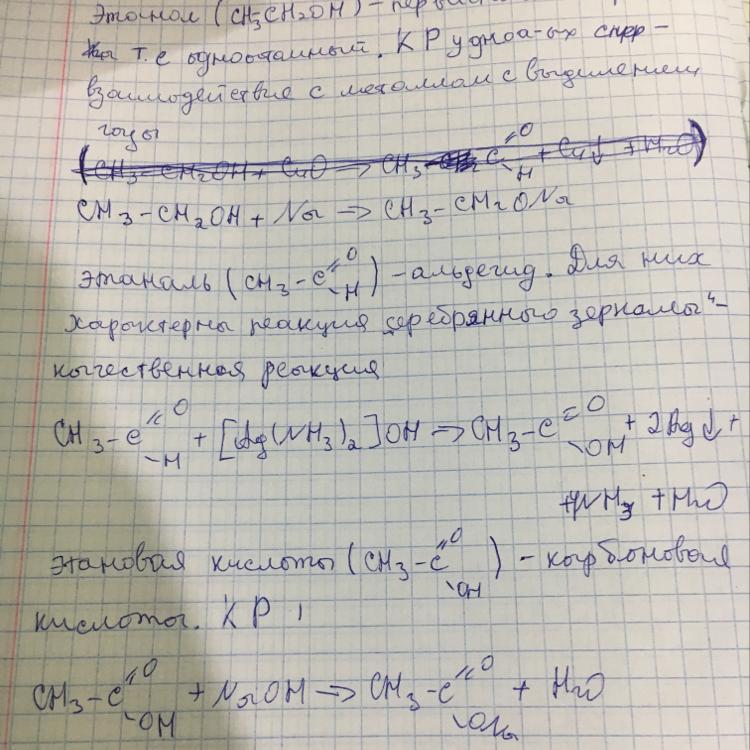 Этанол (CH3CH2OH) - 
т.е одноатомный. КР
взаимодействие с металлом с выделением
CH3-CH2OH + CuO → CH3 C =O -H + Cu↓ + H2O
CH3-CH2OH + Na → CH3-CH2ONa
этаналь (CH3-C =O -H) - альдегид. Для них
характерны реакция серебрянного зеркала" -
качественная реакция
CH3-C =O -H + [Ag(NH3)2]OH → CH3-C =O -OH + 2Ag↓ +
+ NH3 + H2O
этановая кислота (CH3-C =O -OH) - карбоновая
кислота. КР
CH3-C =O -OH + NaOH → CH3-C =O -ONa + H2O